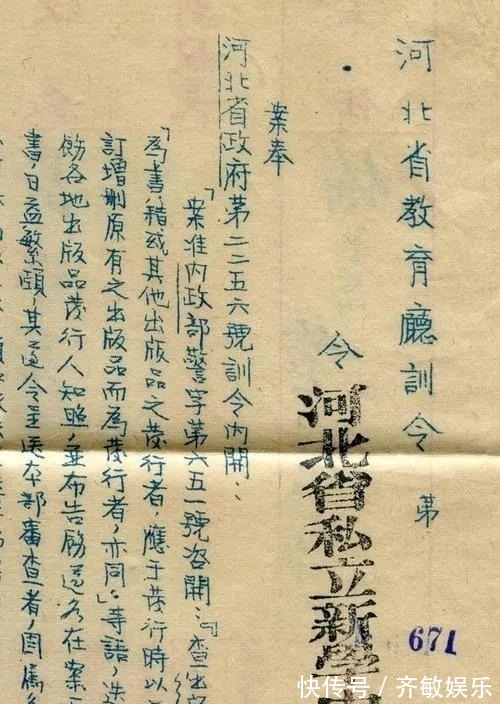 河北省教育廳訓令 第
671
令
河北省私立新學
案奉
河北省政府第二二五六號訓令內開：
「案准內政部警字第六五一號咨開：「查出
「為書籍或其他出版品之發行者，應于發行時以
訂增刪原有之出版品而為發行者，亦同」。等語，
飭各地出版品發行人知照，並布告飭遵各在案
書，日益繁頤，其遵令呈送本部審查者，固屬
快传号／齐敏娱乐